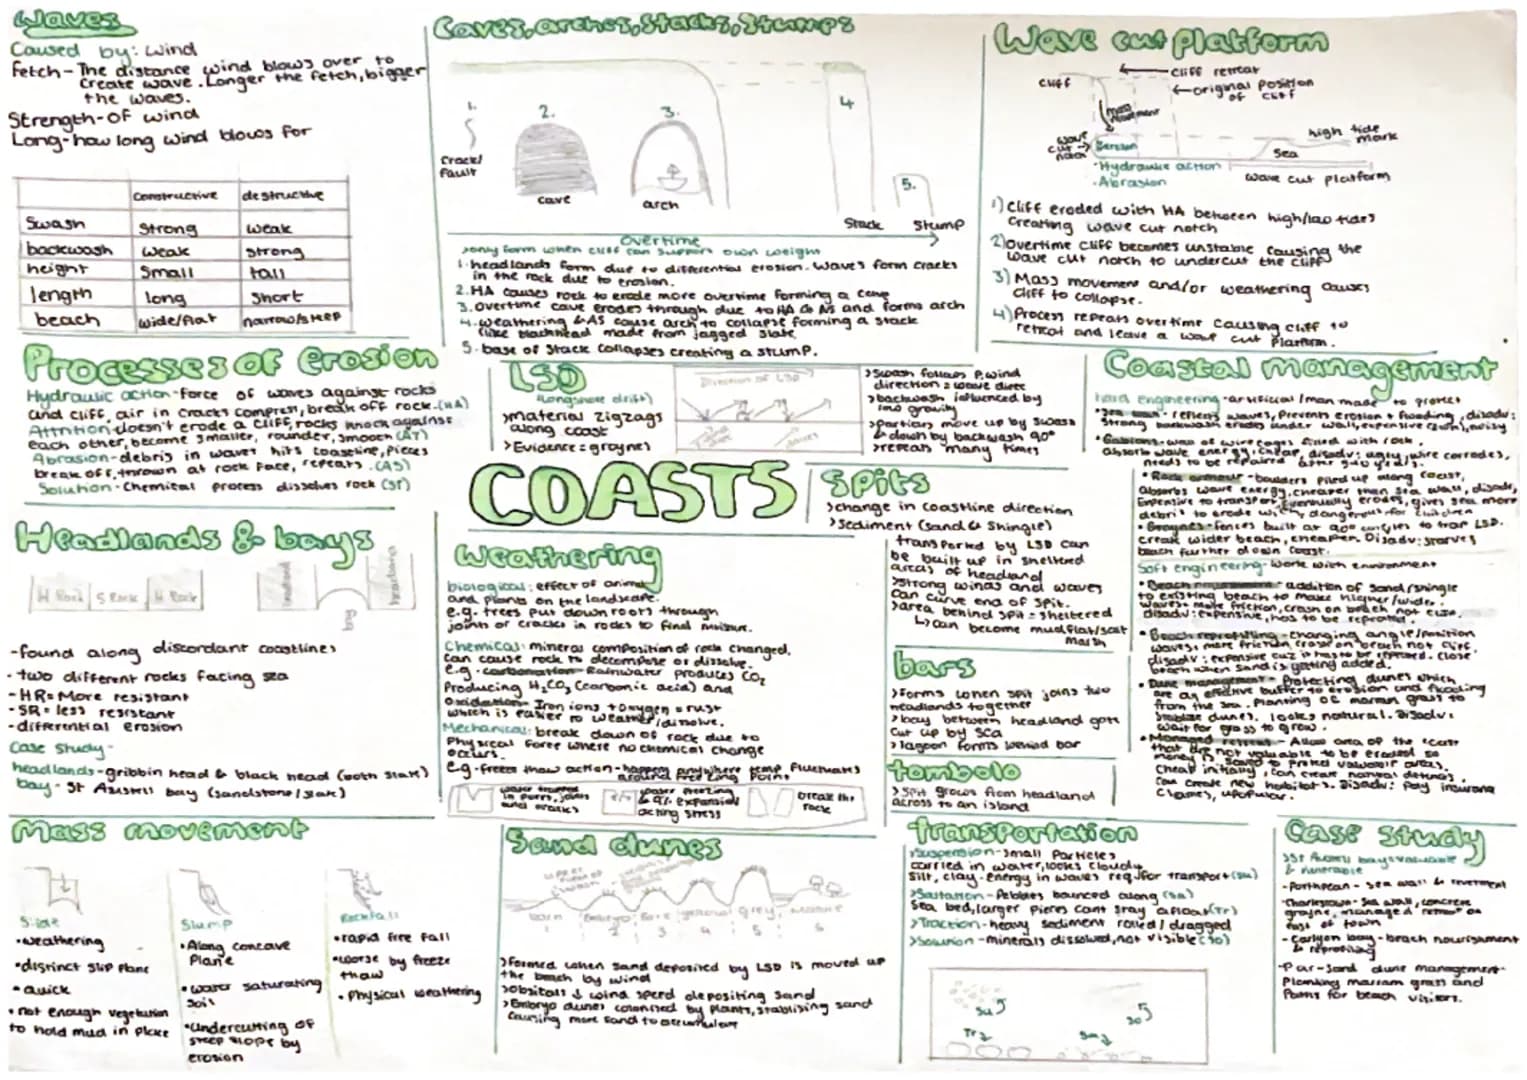 Waves
Caused by: wind
Fetch - The distance wind blows over to
create wave. Longer the fetch, bigger
the waves.
Strength - of wind
Long - how long wind blows for
constructive destructive
Swash strong weak
backwash weak strong
height small tall
length long short
beach wide/flat narrow/steep
Processes of erosion
Hydraulic action - force of waves against rocks
and cliff, air in cracks compress, break off rock. (HA)
Attrition - doesn't erode a cliff, rocks knock against
each other, become smaller, rounder, smooth (AT)
Abrasion - debris in waves hits coastline, pieces
break off, thrown at rock face, repeats. (AS)
Solution - Chemical process dissolves rock (ST)
Headlands & bays
H Rock S Rock H Rock
headland
bay
headland
-found along discordant coastlines
- two different rocks facing sea
- HR = More resistant
- SR = less resistant
-differential erosion
Case study -
headlands - gribbin head & black head (both slate)
bay - St Austell bay (sandstone/slate)
Mass movement
Slide
•weathering
•distinct slip plane
•quick
•not enough vegetation
to hold mud in place
Slump
•Along concave
Plane
•water saturating
soil
•Undercutting of
steep slope by
erosion
Rockfall
•rapid free fall
•worse by freeze
thaw
•Physical weathering
Caves, arches, stacks, stumps
1.
Crack/
fault
2.
cave
3.
arch
4
Stack
5.
Stump
Overtime
>only form when cliff can support own weight
1. headlands form due to differential erosion. Waves form cracks
in the rock due to erosion.
2. HA causes rock to erode more overtime forming a cave
3. Overtime cave erodes through due to HA & AS and forms arch
4. weathering & AS cause arch to collapse forming a stack
like blackhead made from jagged slate
5. base of stack collapses creating a stump.
LSD
(longshore drift)
>material zigzags
along coast
>Evidence = groynes
Direction of LSD
>Swash follows p.wind
direction = wave direc
>backwash influenced by
gravity
move up by swash
& down by backwash 90°
>repeats many times
COASTS
Weathering
biological: effect of animal
and plants on the landscape.
e.g. trees put down roots through
joints or cracks in rocks to find moisture.
Chemical: mineral composition of rock changed.
Can cause rock to decompose or dissolve.
e.g. carbonation - Rainwater produces CO2
Producing H2CO3 (carbonic acid) and
Oxidation - Iron ions + oxygen = rust
which is easier to weather/dissolve.
Mechanical: break down of rock due to
Physical force where no chemical change
occurs.
e.g. freeze thaw action - happens anywhere temp fluctuates
around freezing point
water trapped
in pores, joints
and cracks
water freezing
& 9% expansion
acting stress
break the
rock
Sand dunes
Embryo Fore Grey Mature
1 2 3 4 5 6
>formed when sand deposited by LSD is moved up
the beach by wind
>obsticals ↓ wind speed depositing sand
>Embryo dunes colonised by plants, stabilising sand
causing more sand to accumulate
Wave cut platform
cliff
cliff retreat
original position
of cliff
mass
movement
wave
cut
notch
Erosion
•Hydraulic action
•Abrasion
high tide
mark
Sea
wave cut platform
1) Cliff eroded with HA between high/low tides
creating wave cut notch
2) Overtime cliff becomes unstable causing the
wave cut notch to undercut the cliff
3) Mass movement and/or weathering causes
cliff to collapse.
4) Process repeats overtime causing cliff to
retreat and leave a wave cut platform.
Spits
>change in coastline direction
>Sediment (sand & shingle)
transported by LSD can
be built up in sheltered
areas of headland
>strong winds and waves
can curve end of spit.
>area behind spit = sheltered
↳ can become mudflat/salt
marsh
bars
>forms when spit joins two
headlands together
>bay between headland gets
cut up by sea
>lagoon forms behind bar
tombolo
>Spit grows from headland
across to an island
Coastal management
Hard engineering - artificial/man made to protect
•Sea wall - reflects waves, prevents erosion + flooding, disadv:
Strong backwash erodes under wall, expensive, noisy
•Gabions - wire cages filled with rock.
absorb wave energy, cheap, disadv: ugly, wire corrodes,
needs to be repaired after
•Rock armour - boulders piled up along coast,
absorbs wave energy, cheaper than sea wall, disadv:
Expensive to transport, eventually erodes, gives sea more
debris to erode with, dangerous for children
•Groynes - fences built at 90° angles to trap LSD.
create wider beach, cheaper. Disadv: starves
beach further down coast.
Soft engineering - work with environment
•Beach nourishment - addition of sand/shingle
to existing beach to make higher/wider.
waves = more friction, crash on beach not cliff.
disadv: expensive, has to be repeated.
•Beach reprofiling - changing angle/position
waves = more friction, crash on beach not cliff.
disadv: expensive cuz it has to be repeated. Close
beach when sand is getting added.
•Dune management - Protecting dunes which
are an effective buffer to erosion and flooding
from the sea. Planting of marram grass to
stabilise dunes, looks natural. Disadv:
wait for grass to grow.
•Managed retreat - Allow area of the coast
that are not valuable to be eroded so
money is saved to protect valuable areas.
Cheap initially, can create natural defences,
can create new habitats. Disadv: pay insurance
claims, unpopular.
Transportation
>Suspension - small particles
carried in water, looks cloudy
silt, clay - energy in waves req. for transport (su)
>Saltation - Pebbles bounced along (sa)
sea bed, larger pieces cant stay afloat (Tr)
>Traction - heavy sediment rolled/dragged
>Solution - minerals dissolved, not visible (so)
Su
So
Tr
Sa
Case study
>St Austell bay = valuable
& vulnerable
-Porthpean - sea wall & revetment
-Charlestown - Sea wall, concrete
groyne, managed retreat on
east of town
-Carlyon bay - beach nourishment
& reprofiling
-Par - sand dune management -
Planting marram grass and
Paths for beach visitors.